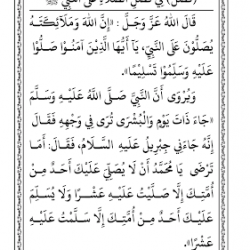 (فصل) في فضل الصلاة على النبي ﷺ
قَالَ اللهُ عَزَّ وَجَلَّ: «إِنَّ اللهَ وَمَلَائِكَتَهُ
يُصَلُّونَ عَلَى النَّبِيِّ، يَا أَيُّهَا الَّذِينَ آمَنُوا صَلُّوا
عَلَيْهِ وَسَلِّمُوا تَسْلِيمًا».
وَيُرْوَى أَنَّ النَّبِيَّ صَلَّى اللهُ عَلَيْهِ وَسَلَّمَ
«جَاءَ ذَاتَ يَوْمٍ وَالْبُشْرَى تُرَى فِي وَجْهِهِ فَقَالَ
إِنَّهُ جَاءَنِي جِبْرِيلُ عَلَيْهِ السَّلَامُ، فَقَالَ: أَمَا
تَرْضَى يَا مُحَمَّدُ أَنْ لَا يُصَلِّيَ عَلَيْكَ أَحَدٌ مِنْ
أُمَّتِكَ إِلَّا صَلَّيْتُ عَلَيْهِ عَشْرًا وَلَا يُسَلِّمَ
عَلَيْكَ أَحَدٌ مِنْ أُمَّتِكَ إِلَّا سَلَّمْتُ عَلَيْهِ
عَشْرًا».